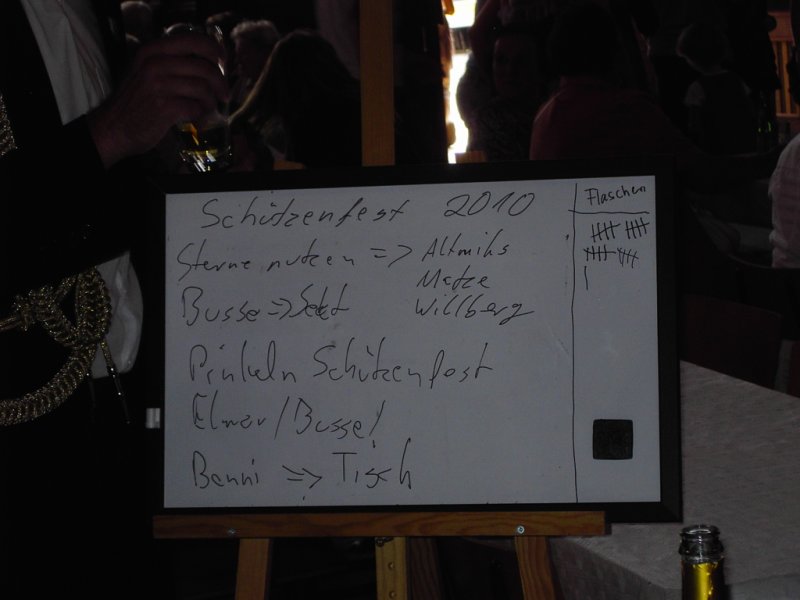 Schützenfest 2010
Sterne nutzen => Altmihs
Matze
Willberg
Busse => Sekt
Pinkeln Schützenfest
Elmar/Busse/
Benni => Tisch
Flaschen